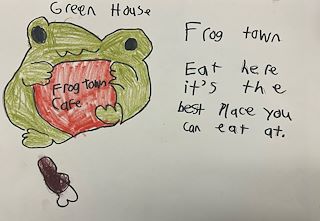 Green House
Frog town
Cafe
Frog town
Eat here
it's the
best Place you
can eat at.